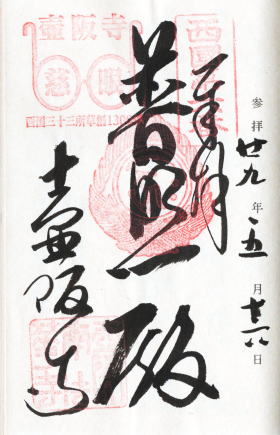 参拝廿九年五月廿八日
奉拝
普照殿
壷阪寺
壷阪寺
慈眼
西国三十三所草創1300年